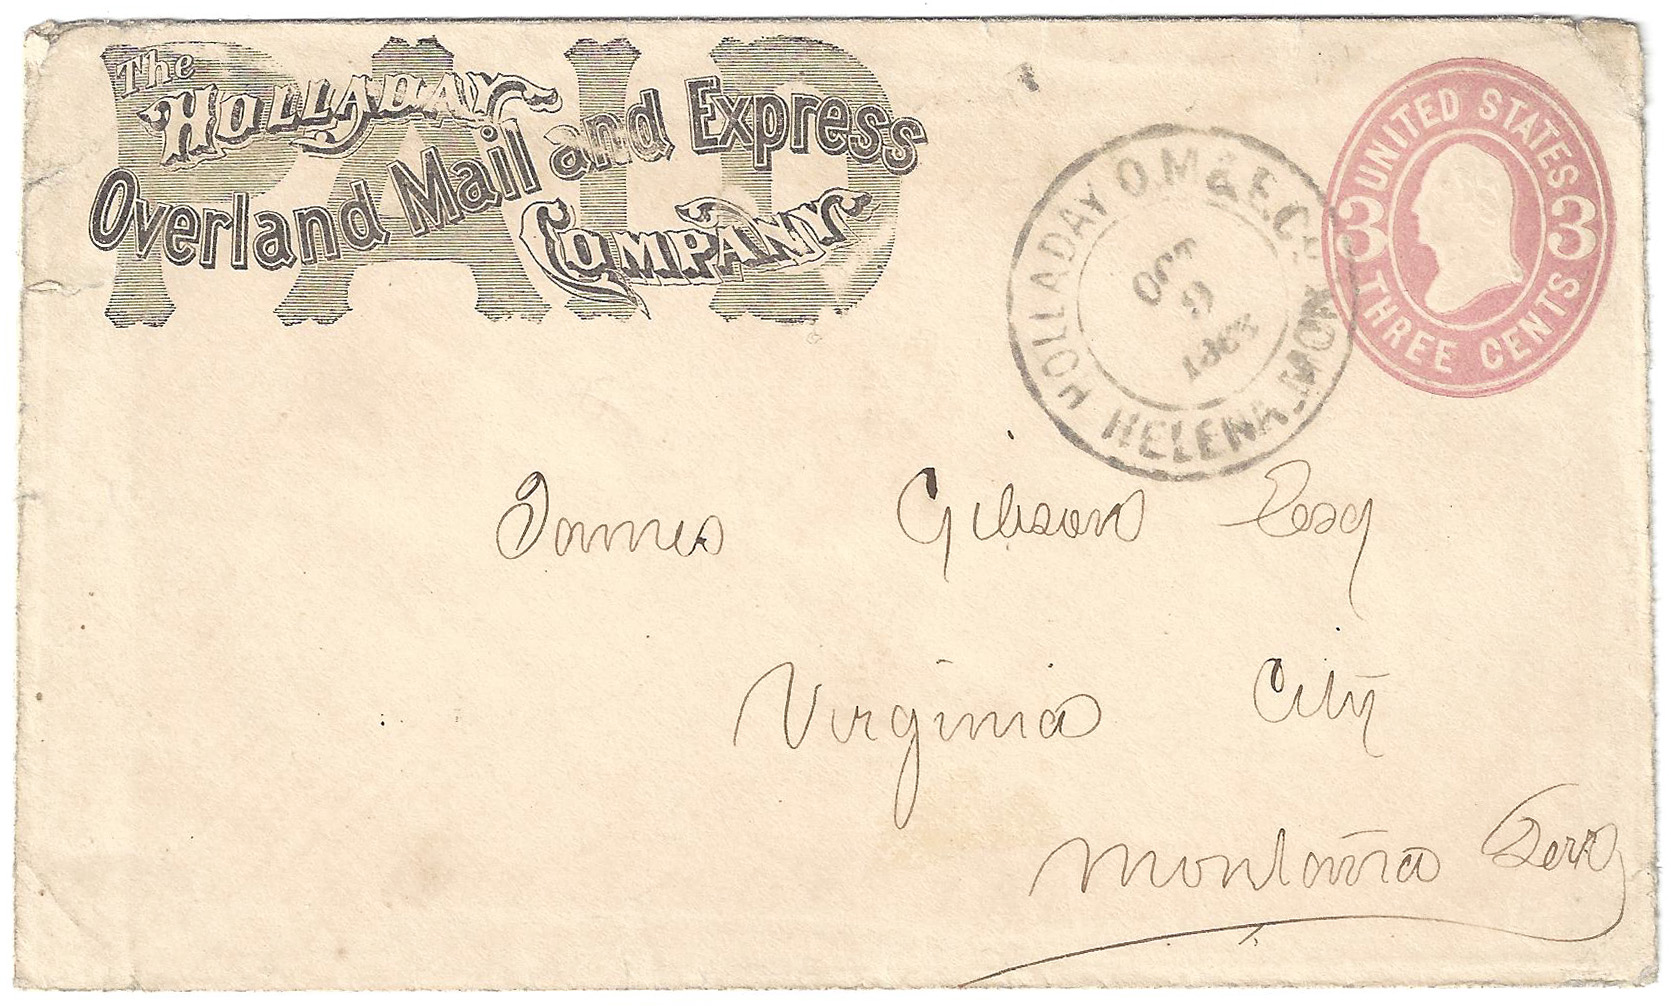 PAID
The
HOLLADAY
Overland Mail and Express
COMPANY
HOLLADAY O.M & E.Co
HELENA, MON
UNITED STATES
3 3
THREE CENTS
James Gibson Esq
Virginia City
Montana Terr